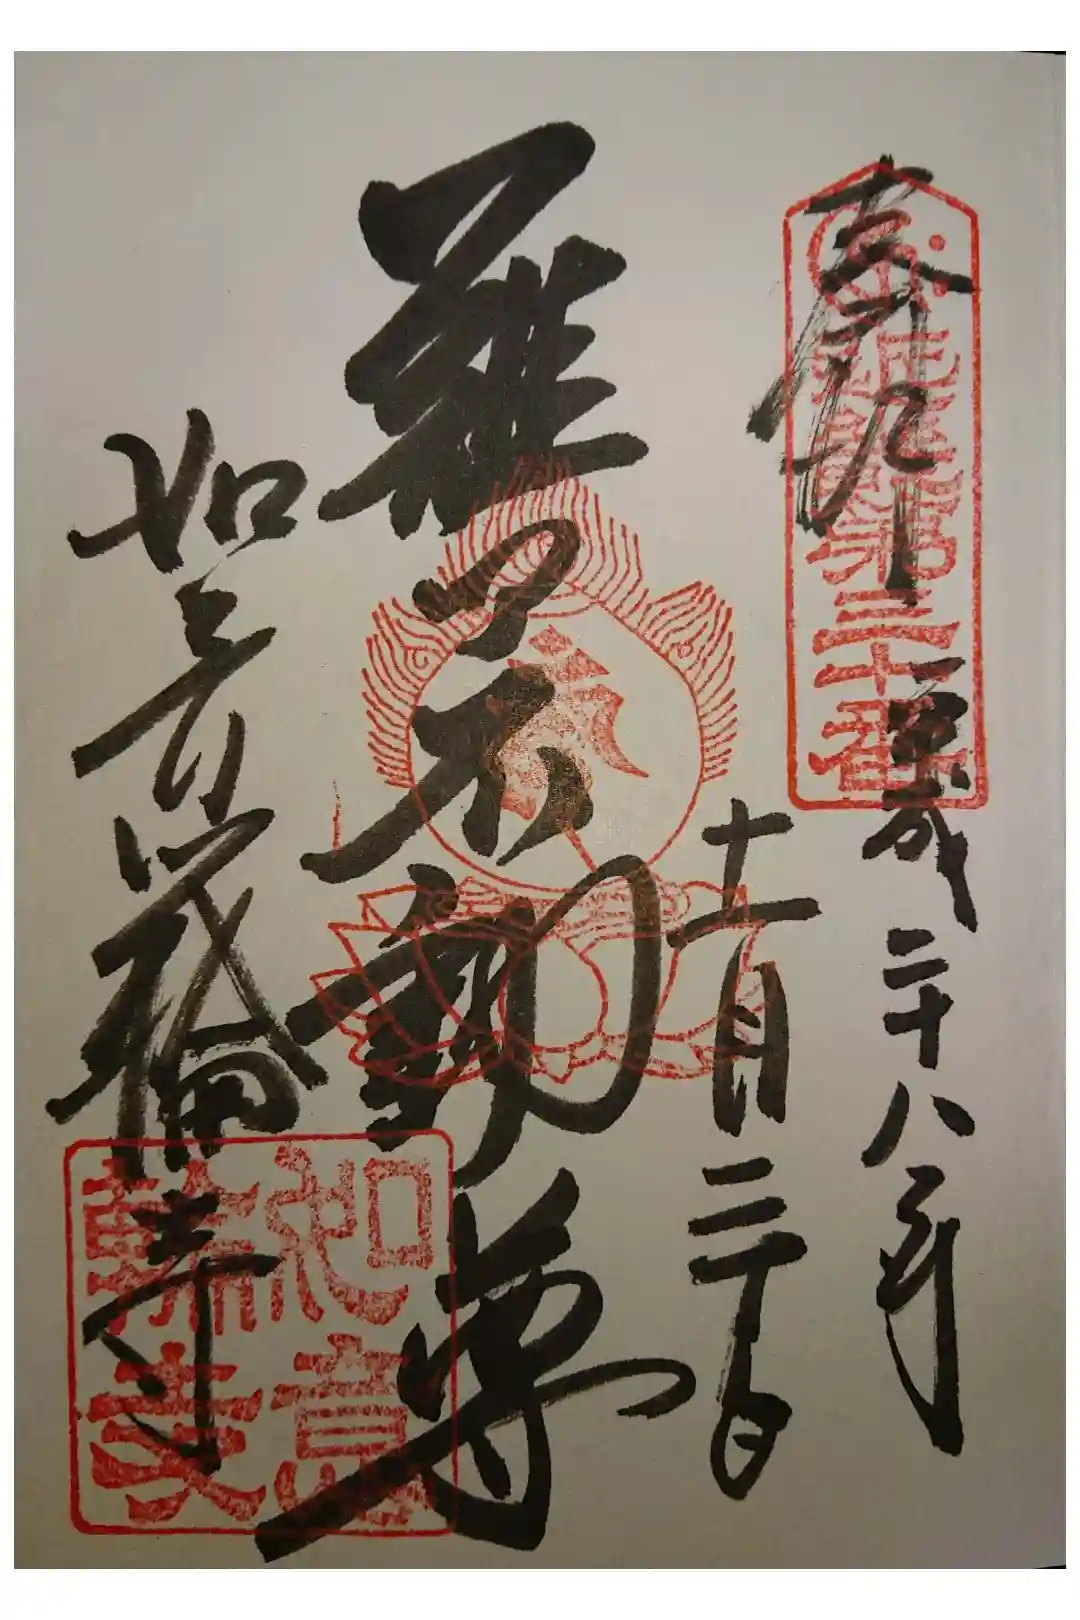 奉拝
第三十番
平成二十八年
十一月三十日
難切不動尊
如意輪寺
如意
輪寺